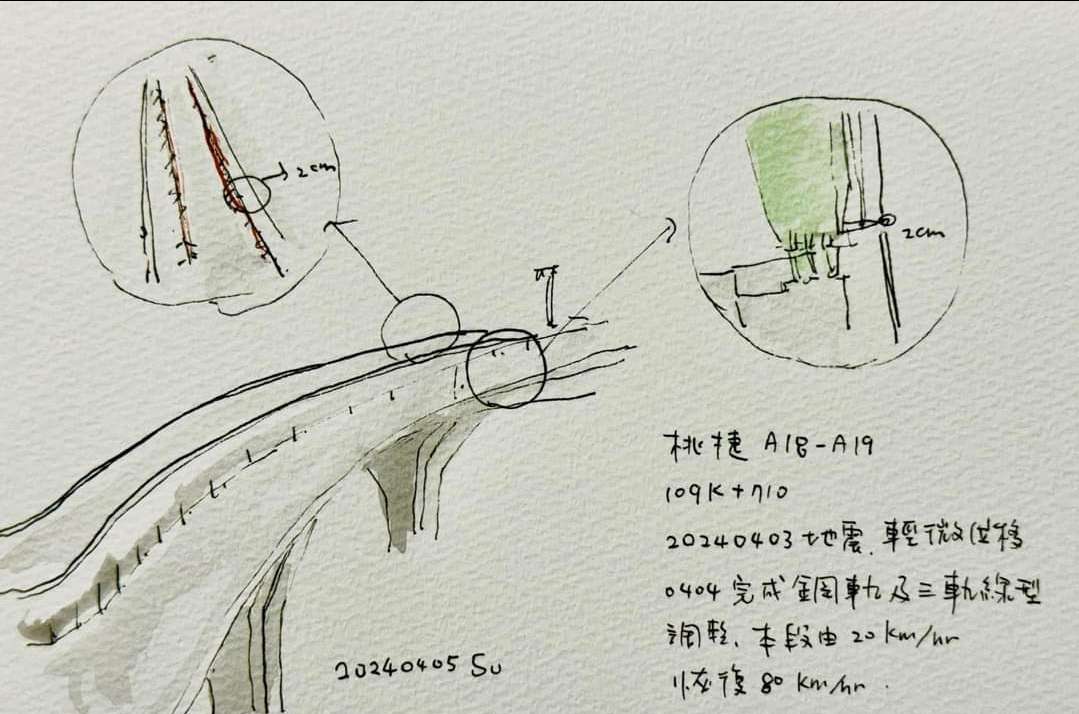 2cm
2cm
桃捷 A18-A19
109K+710
20240403地震、輕微位移
0404完成鋼軌及三軌線型
調整、本段由20km/hr
恢復80km/hr.
20240405 Su